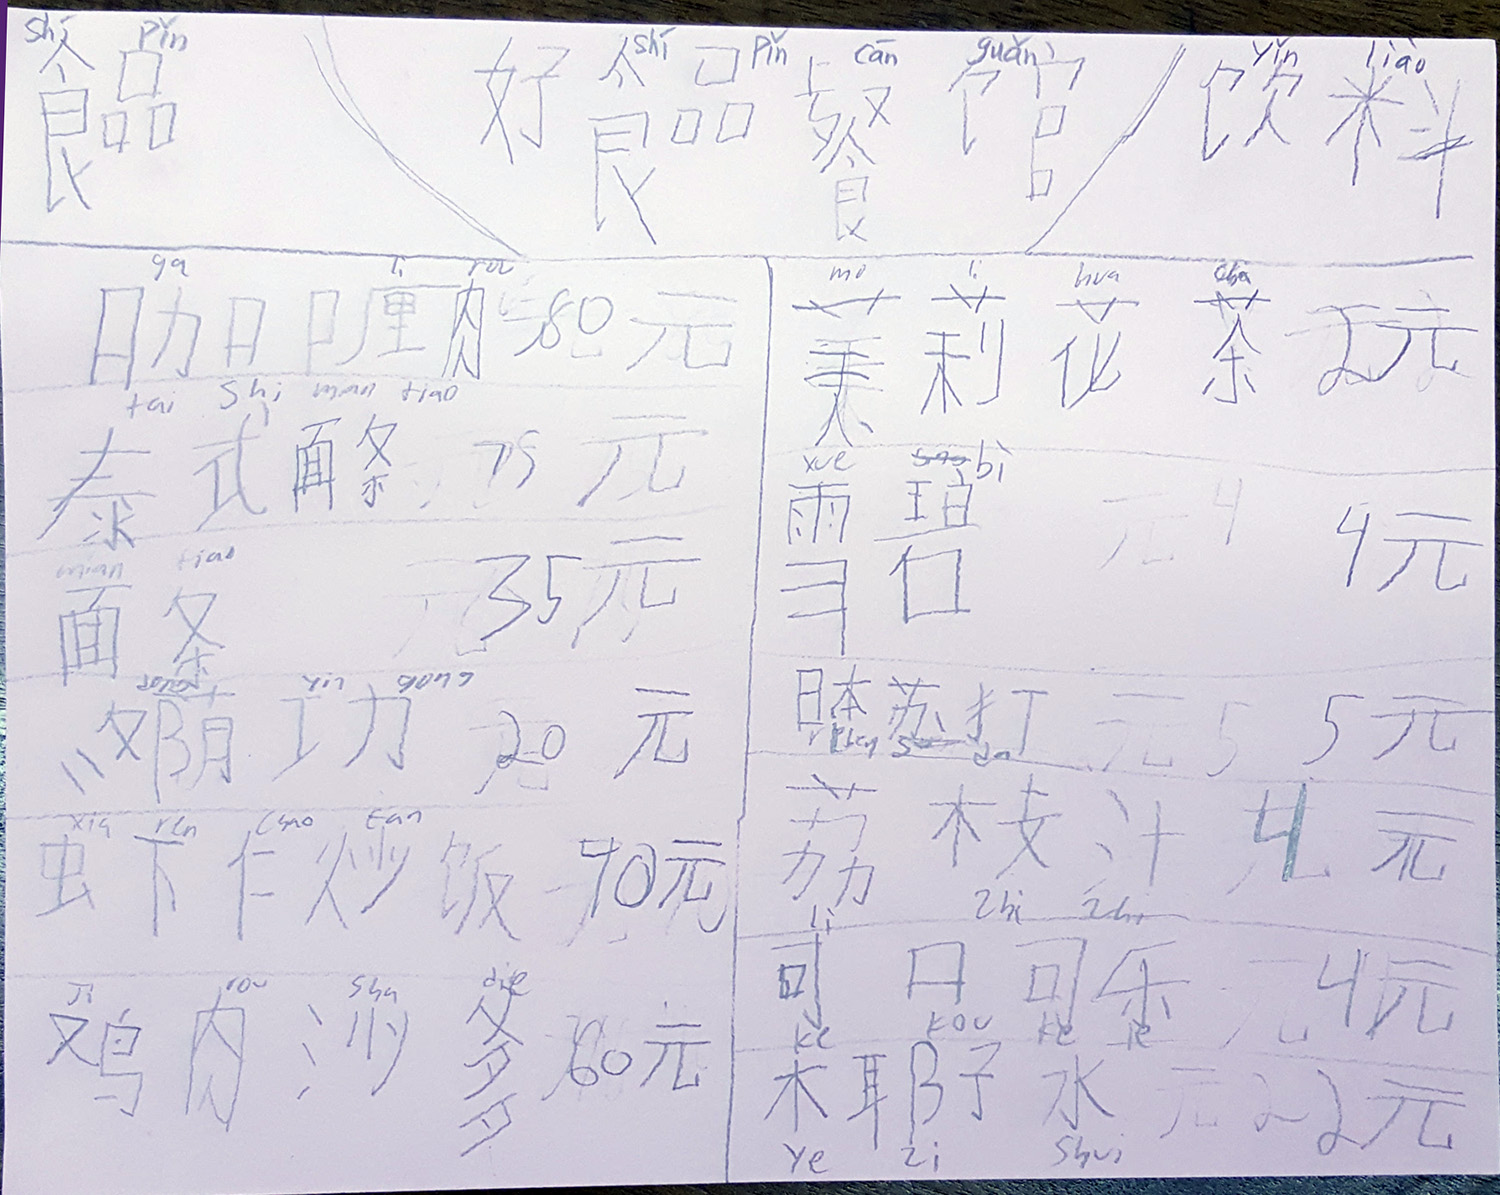 shí pǐn shí pǐn cān guǎn yǐn liào
食品 好食品餐馆 饮料
ga li rou
咖口喱肉 80元
tai shi mian tiao
泰式面条 75元
mian tiao
面条 35元
gong
功 20元
xia ren chao fan
虾仁炒饭 40元
ji rou sha die
鸡肉沙爹 60元
mo li hua cha
茉莉花茶 2元
xue bi
雪碧 4元
日本苏打 5元
ri ben su da
荔枝汁 4元
li zhi zhi
可口可乐 4元
ke kou ke le
椰子水 2元
ye zi shui